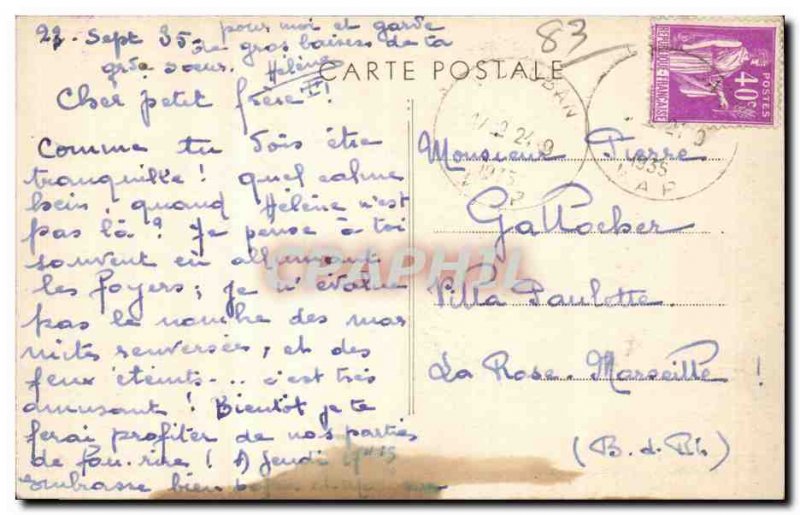 22. Sept 35
CARTE POSTALE
83
RÉPUBLIQUE FRANÇAISE
POSTES
40c
Cher petit frère !
Comme tu dois être
tranquille ! quel calme
hein, quand Hélène n'est
pas là ? Je pense à toi
souvent en allumant
les foyers ; je n'évalue
pas le nombre des mar
mites renversées, et des
feux éteints... c'est très
amusant ! Bientôt je te
ferai profiter de nos parties
de fou-rire ! A Jeudi
embrasse bien
pour moi et garde
de gros baisers de ta
grde sœur. Hélène
Monsieur Pierre
Gallocher
Villa Paulette
La Rose. Marseille !
(B. d. Rh)
1935
VAR
1935
VAR
CPAPHIL